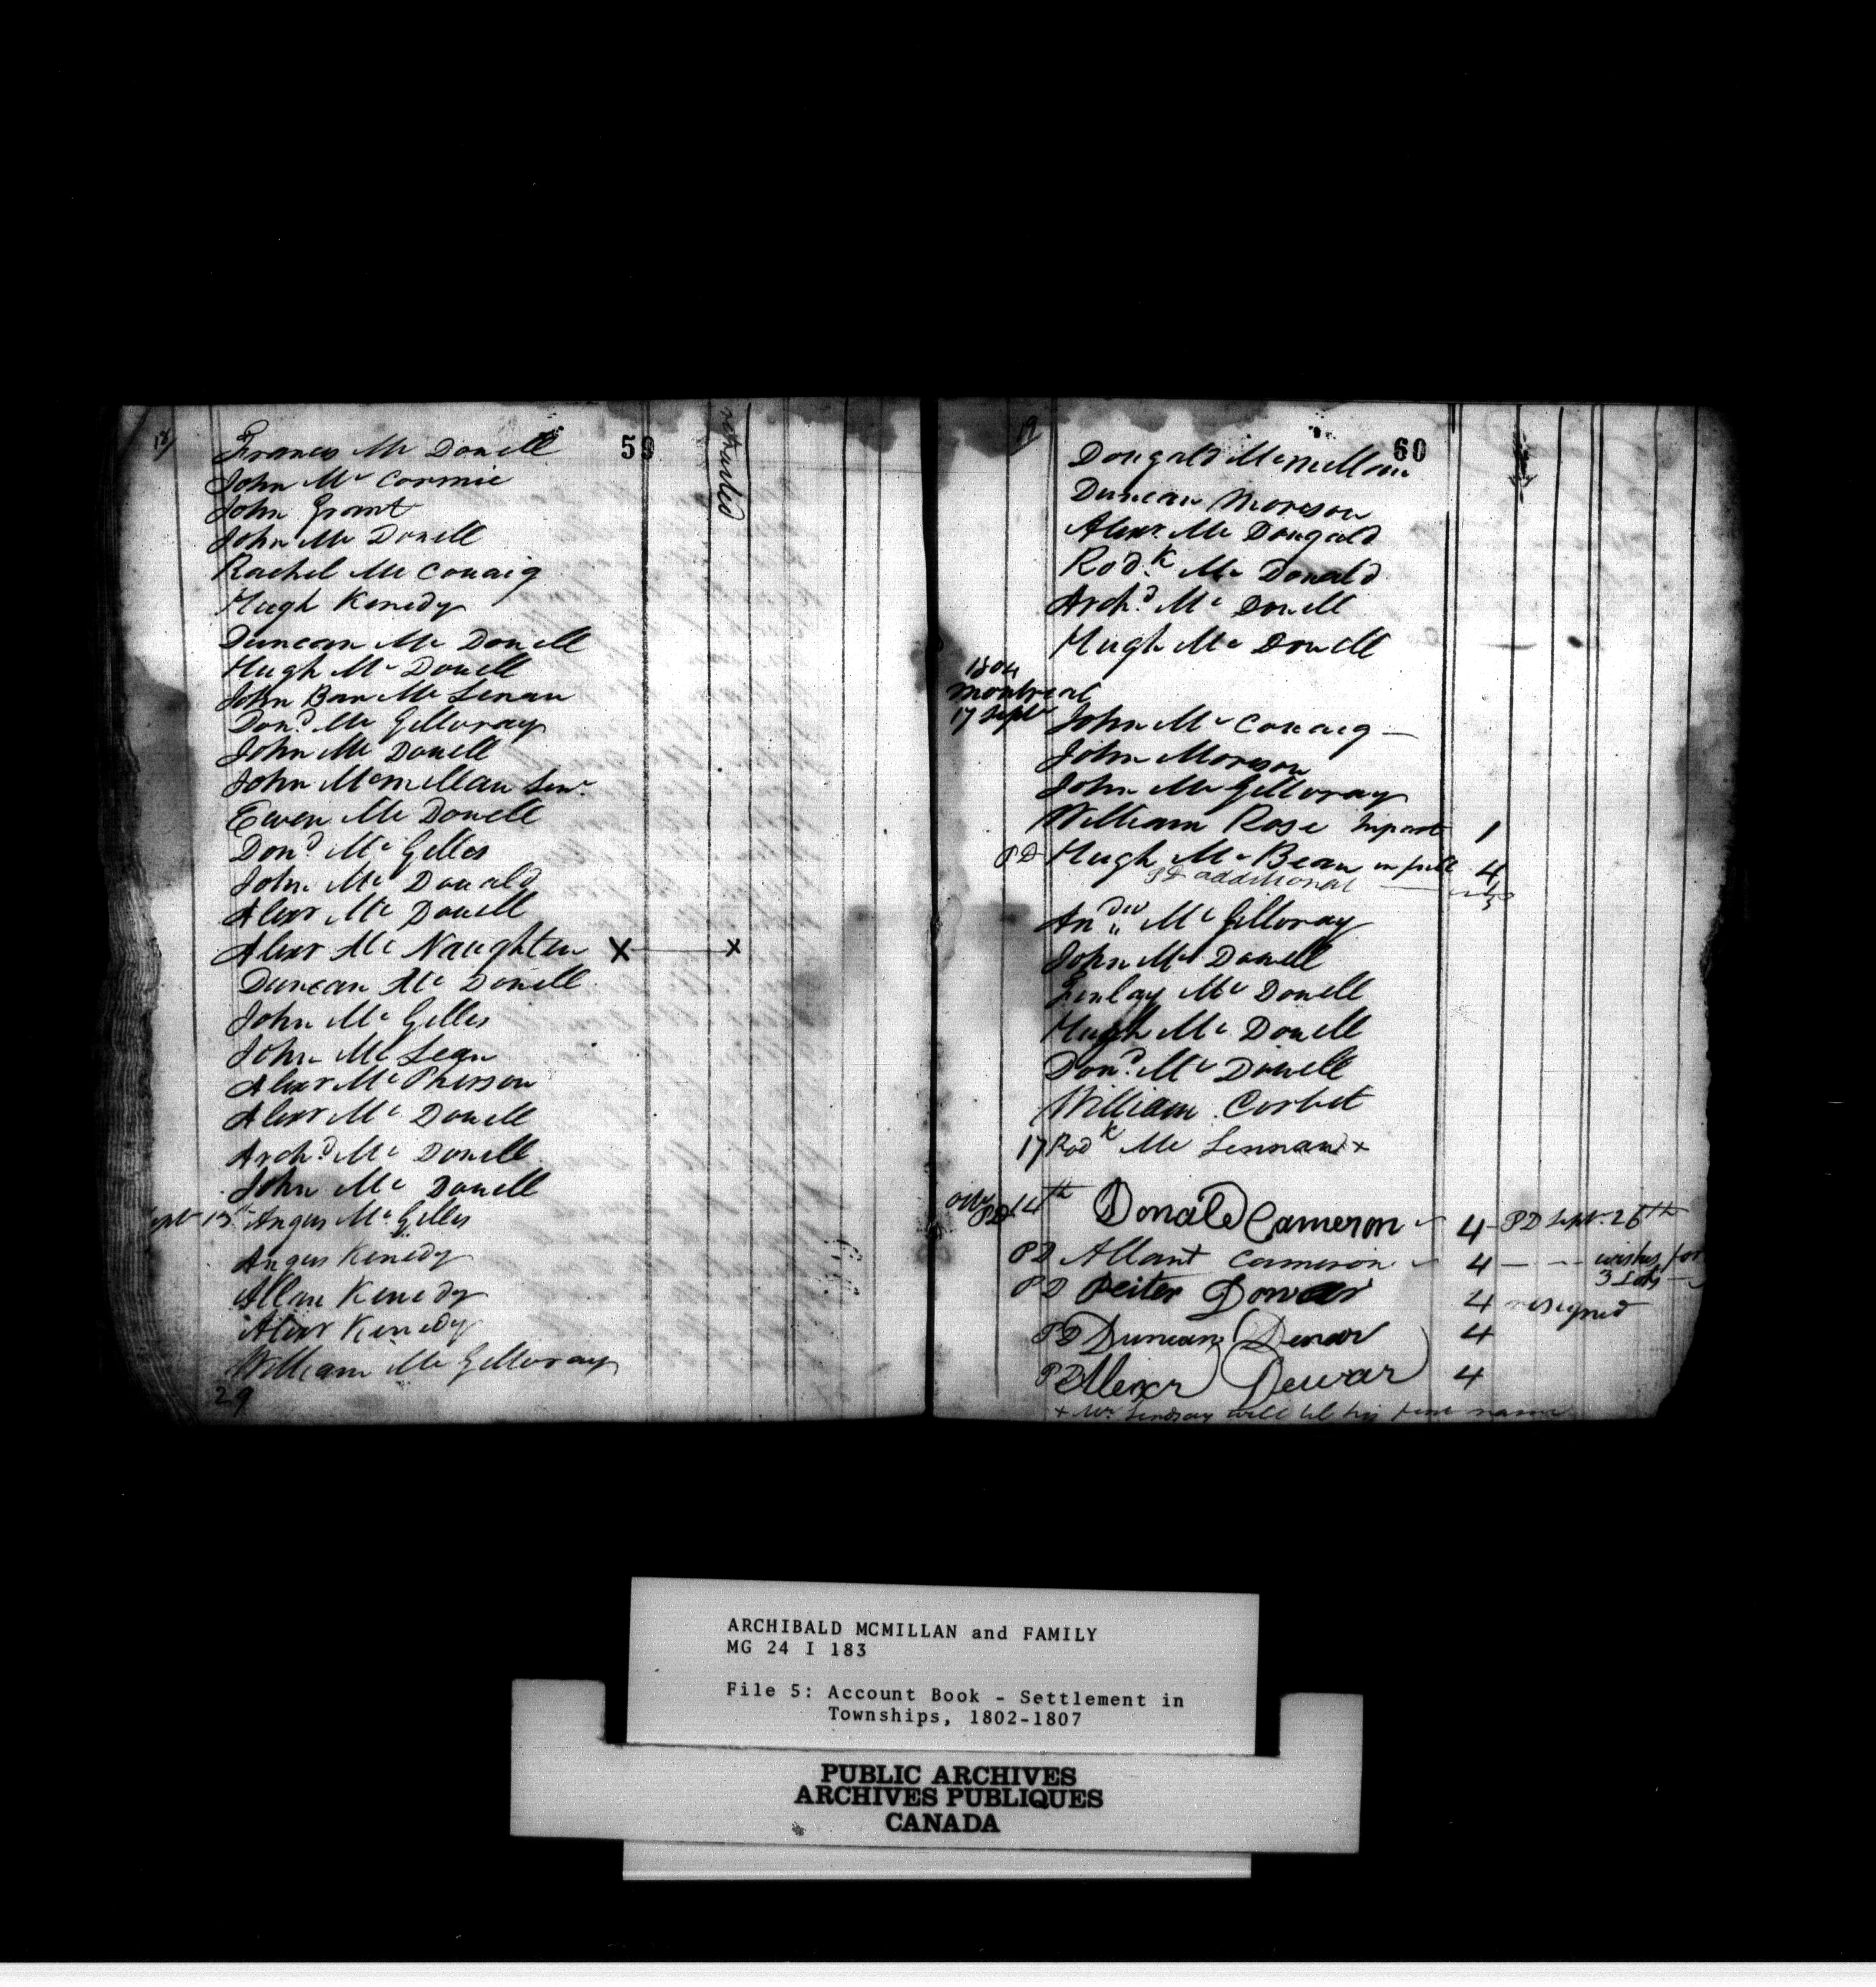 18/
59
retracted
Frances Mc Donell
John Mc Cormic
John Grant
John Mc Donell
Rachel Mc Conaig
Hugh Kenedy
Duncan Mc Donell
Hugh Mc Donell
John Ban Mc Lenan
Dond. Mc Gilloray
John Mc Donell
John Mcmillan Senr.
Ewen Mc Donell
Dond. Mc Gilles
John Mc Donald
Alexr Mc Donell
Alexr Mc Naughten X X
Duncan Mc Donell
John Mc Gilles
John Mc Lean
Alexr Mc Pherson
Alexr Mc Donell
Archd. Mc Donell
John Mc Donell
Sept 13th Angus Mc Gilles
Angus Kenedy
Allan Kenedy
Alexr Kenedy
William Mc Gilloray
29
19
60
Dougald Mcmillan
Duncan Morison
Alexr. Mc Dougald
Rodk. Mc Donald
Archd. Mc Donell
Hugh Mc Donell
1804
Montreal
17 Septr John Mc Conaig —
John Morison
John Mc Gilloray
William Rose in part 1
PD Hugh Mc Bean in full 4
PD additional
Andw Mc Gilloray
John Mc Donell
Finlay Mc Donell
Hugh Mc Donell
Dond. Mc Donell
William Corbet
17 Rodk Mc Lennan x
PD 14th Donald Cameron 4 - PD Sept. 26th
PD Allan Cameron 4 — — wishes for
3 Lots —
PD Peiter Dowar 4 resigned
PD Duncan Dewar 4
PD Alexr Dewar 4
+ Mr. Lindsay will tel his name
ARCHIBALD MCMILLAN and FAMILY
MG 24 I 183
File 5: Account Book - Settlement in
Townships, 1802-1807
PUBLIC ARCHIVES
ARCHIVES PUBLIQUES
CANADA